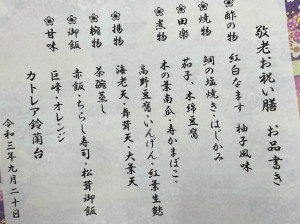 敬老お祝い膳 お品書き
❀酢の物 紅白なます 柚子風味
❀焼物 鯛の塩焼き・はじかみ
❀田楽 茄子・木綿豆腐
❀煮物 木の葉南瓜・寿かまぼこ・
高野豆腐・いんげん・紅葉生麩
❀揚物 海老天・舞茸天・大葉天
❀椀物 茶碗蒸し
❀御飯 赤飯・ちらし寿司・松茸御飯
❀甘味 巨峰・オレンジ
カトレア鈴蘭台
令和三年九月二十日